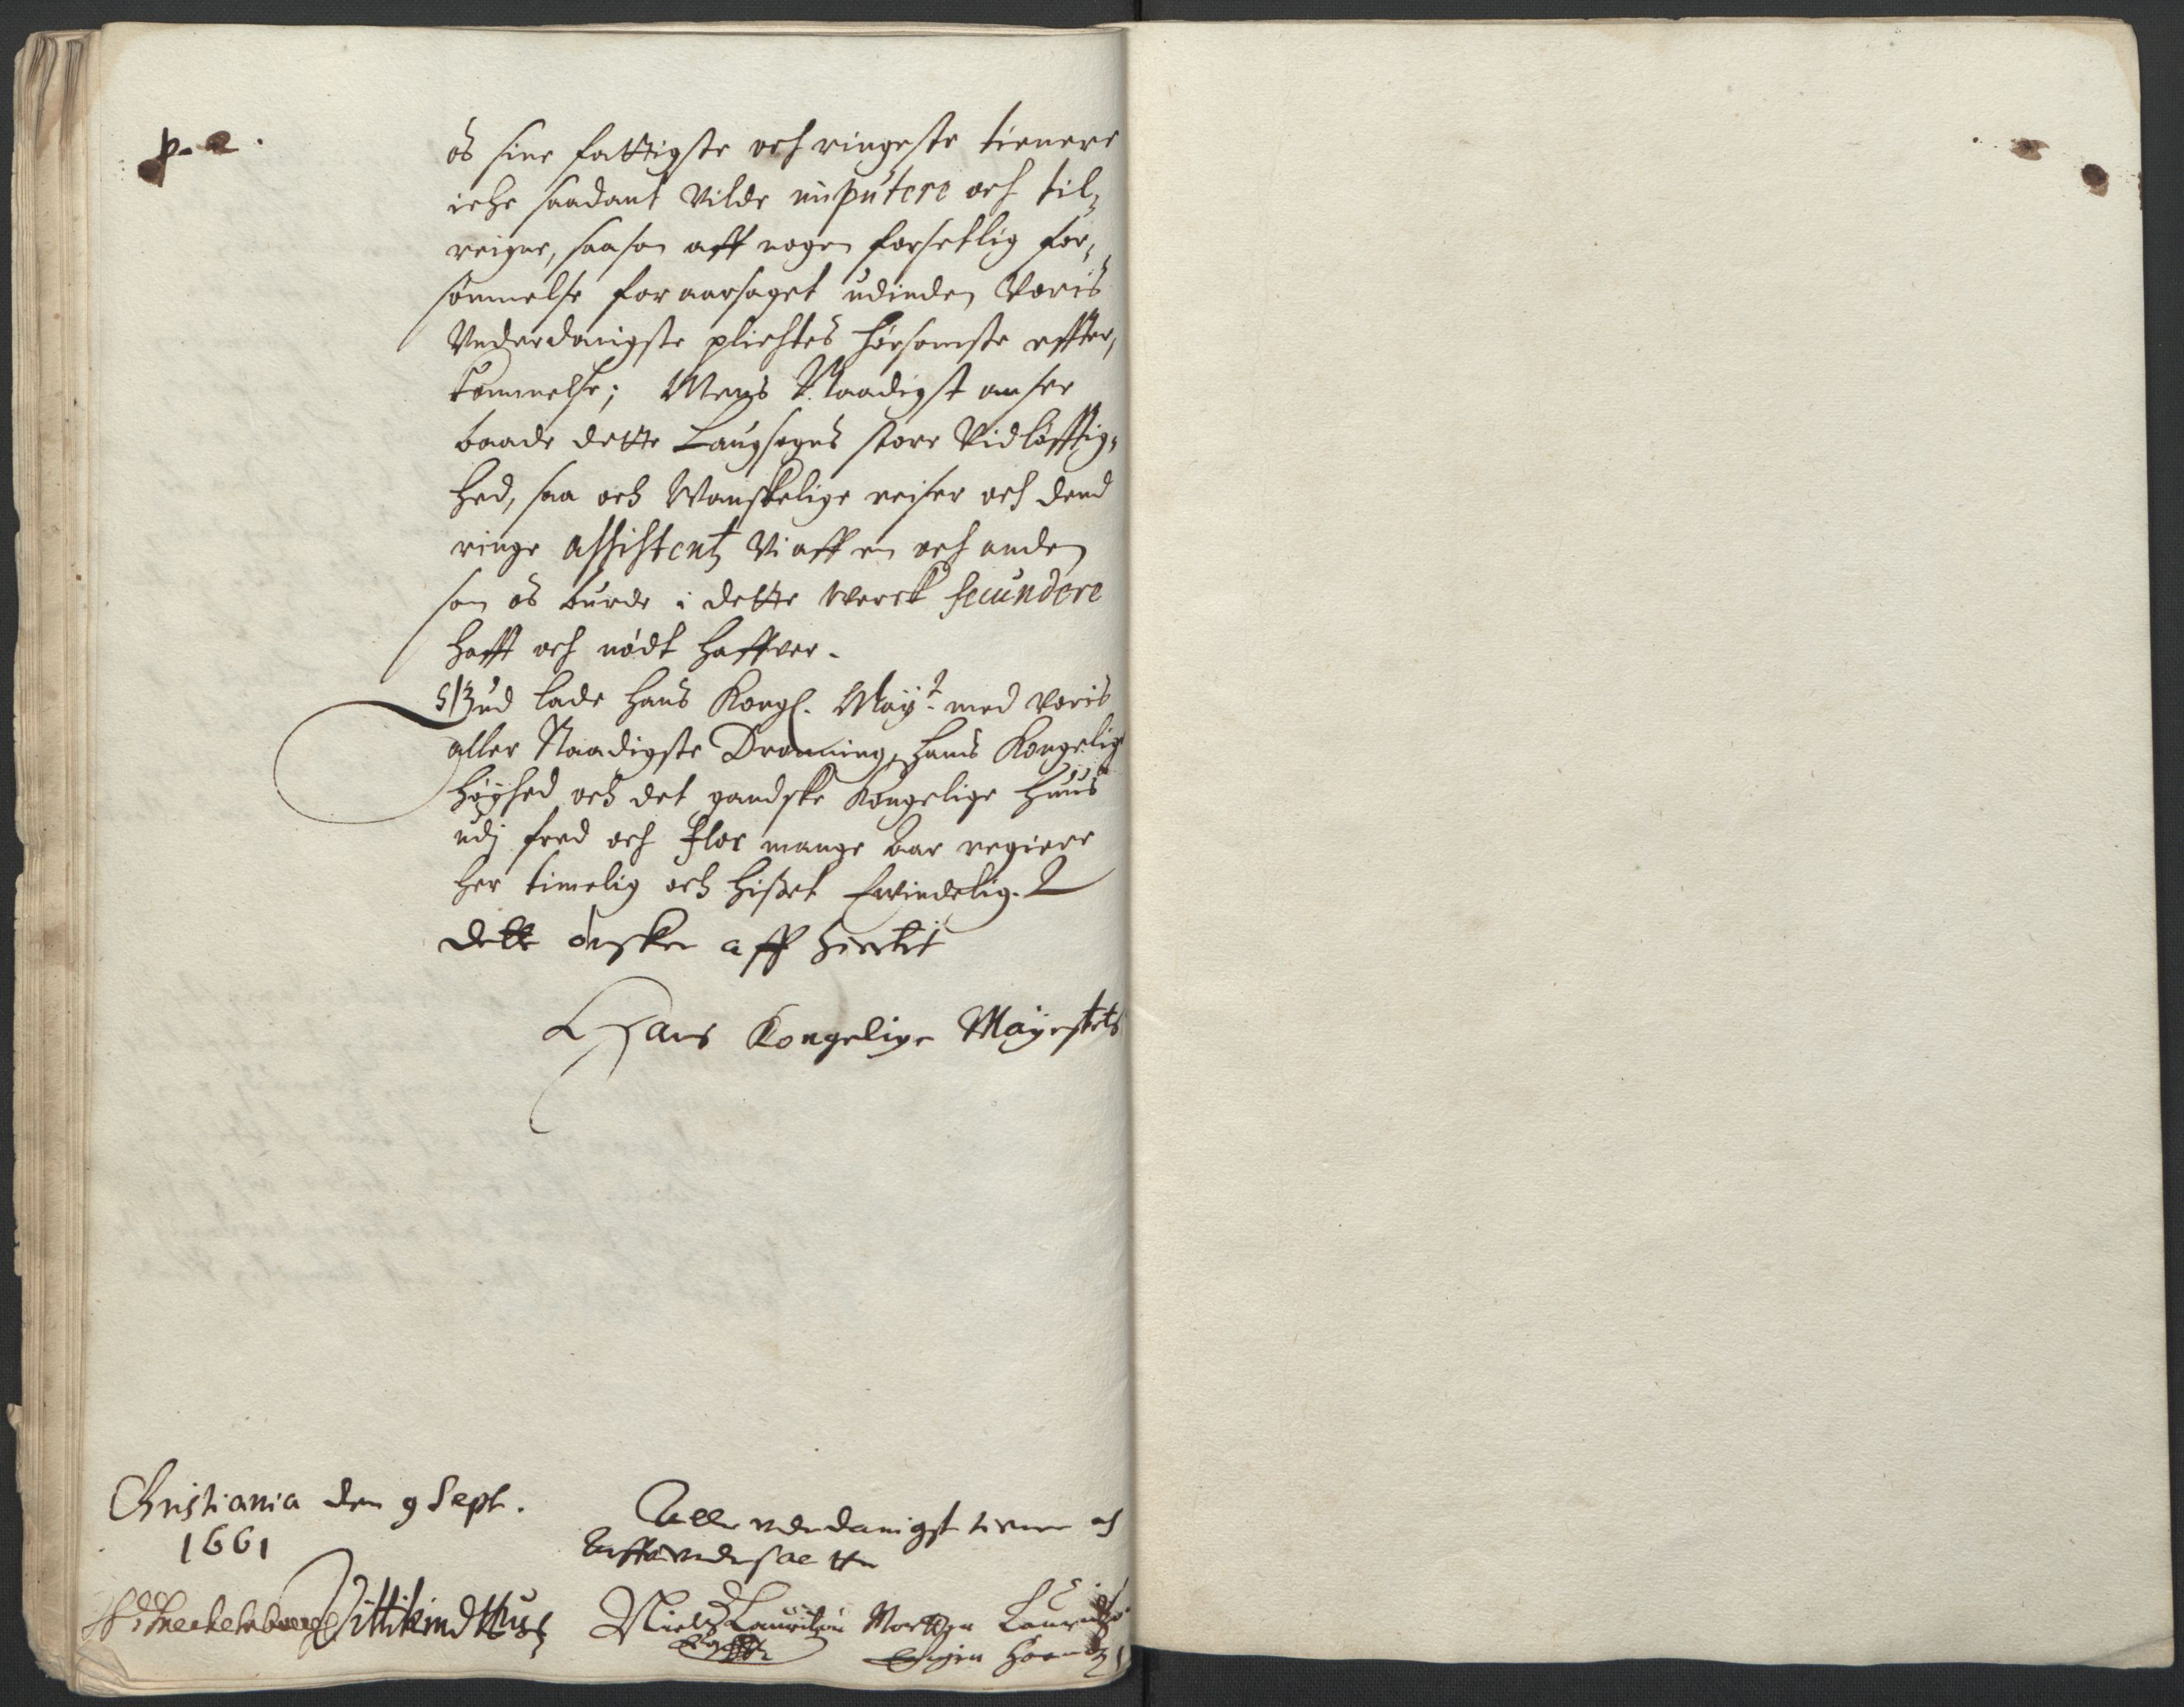 p. 2.
os sine fattigste och ringeste tienere
icke saadant Vilde imputere och til,
reigne, saasom aff nogen forsetlig for,
sømmelse foraarsaget udinden Voris
Vnderdanigste plichtes hørsomste effter,
kommelse; Mens Naadigst ansee
baade dette Langsogns store Vidløfftig,
hed, saa och Wanskelige reiser och dend
ringe assistentz Vi aff en och anden
som os burde i dette Werck secundere
hafft och nødt haffver.
Gud lade Hans Kongl. Mayt. med Voris
aller Naadigste Dronning, Hans Kongelig
Høyhed och det gandske Kongelige Huus
udj fred och Flor mange Aar regiere
her timelig och hisset Ewindelig.
dette ønsker aff hiertet
Hans Kongelige Mayestets
Christiania den 9 Sept.
1661
Aller vnderdanigst tienere och
Vittikind Huss
Niels Lauritzøn Mortten Lauritzøn